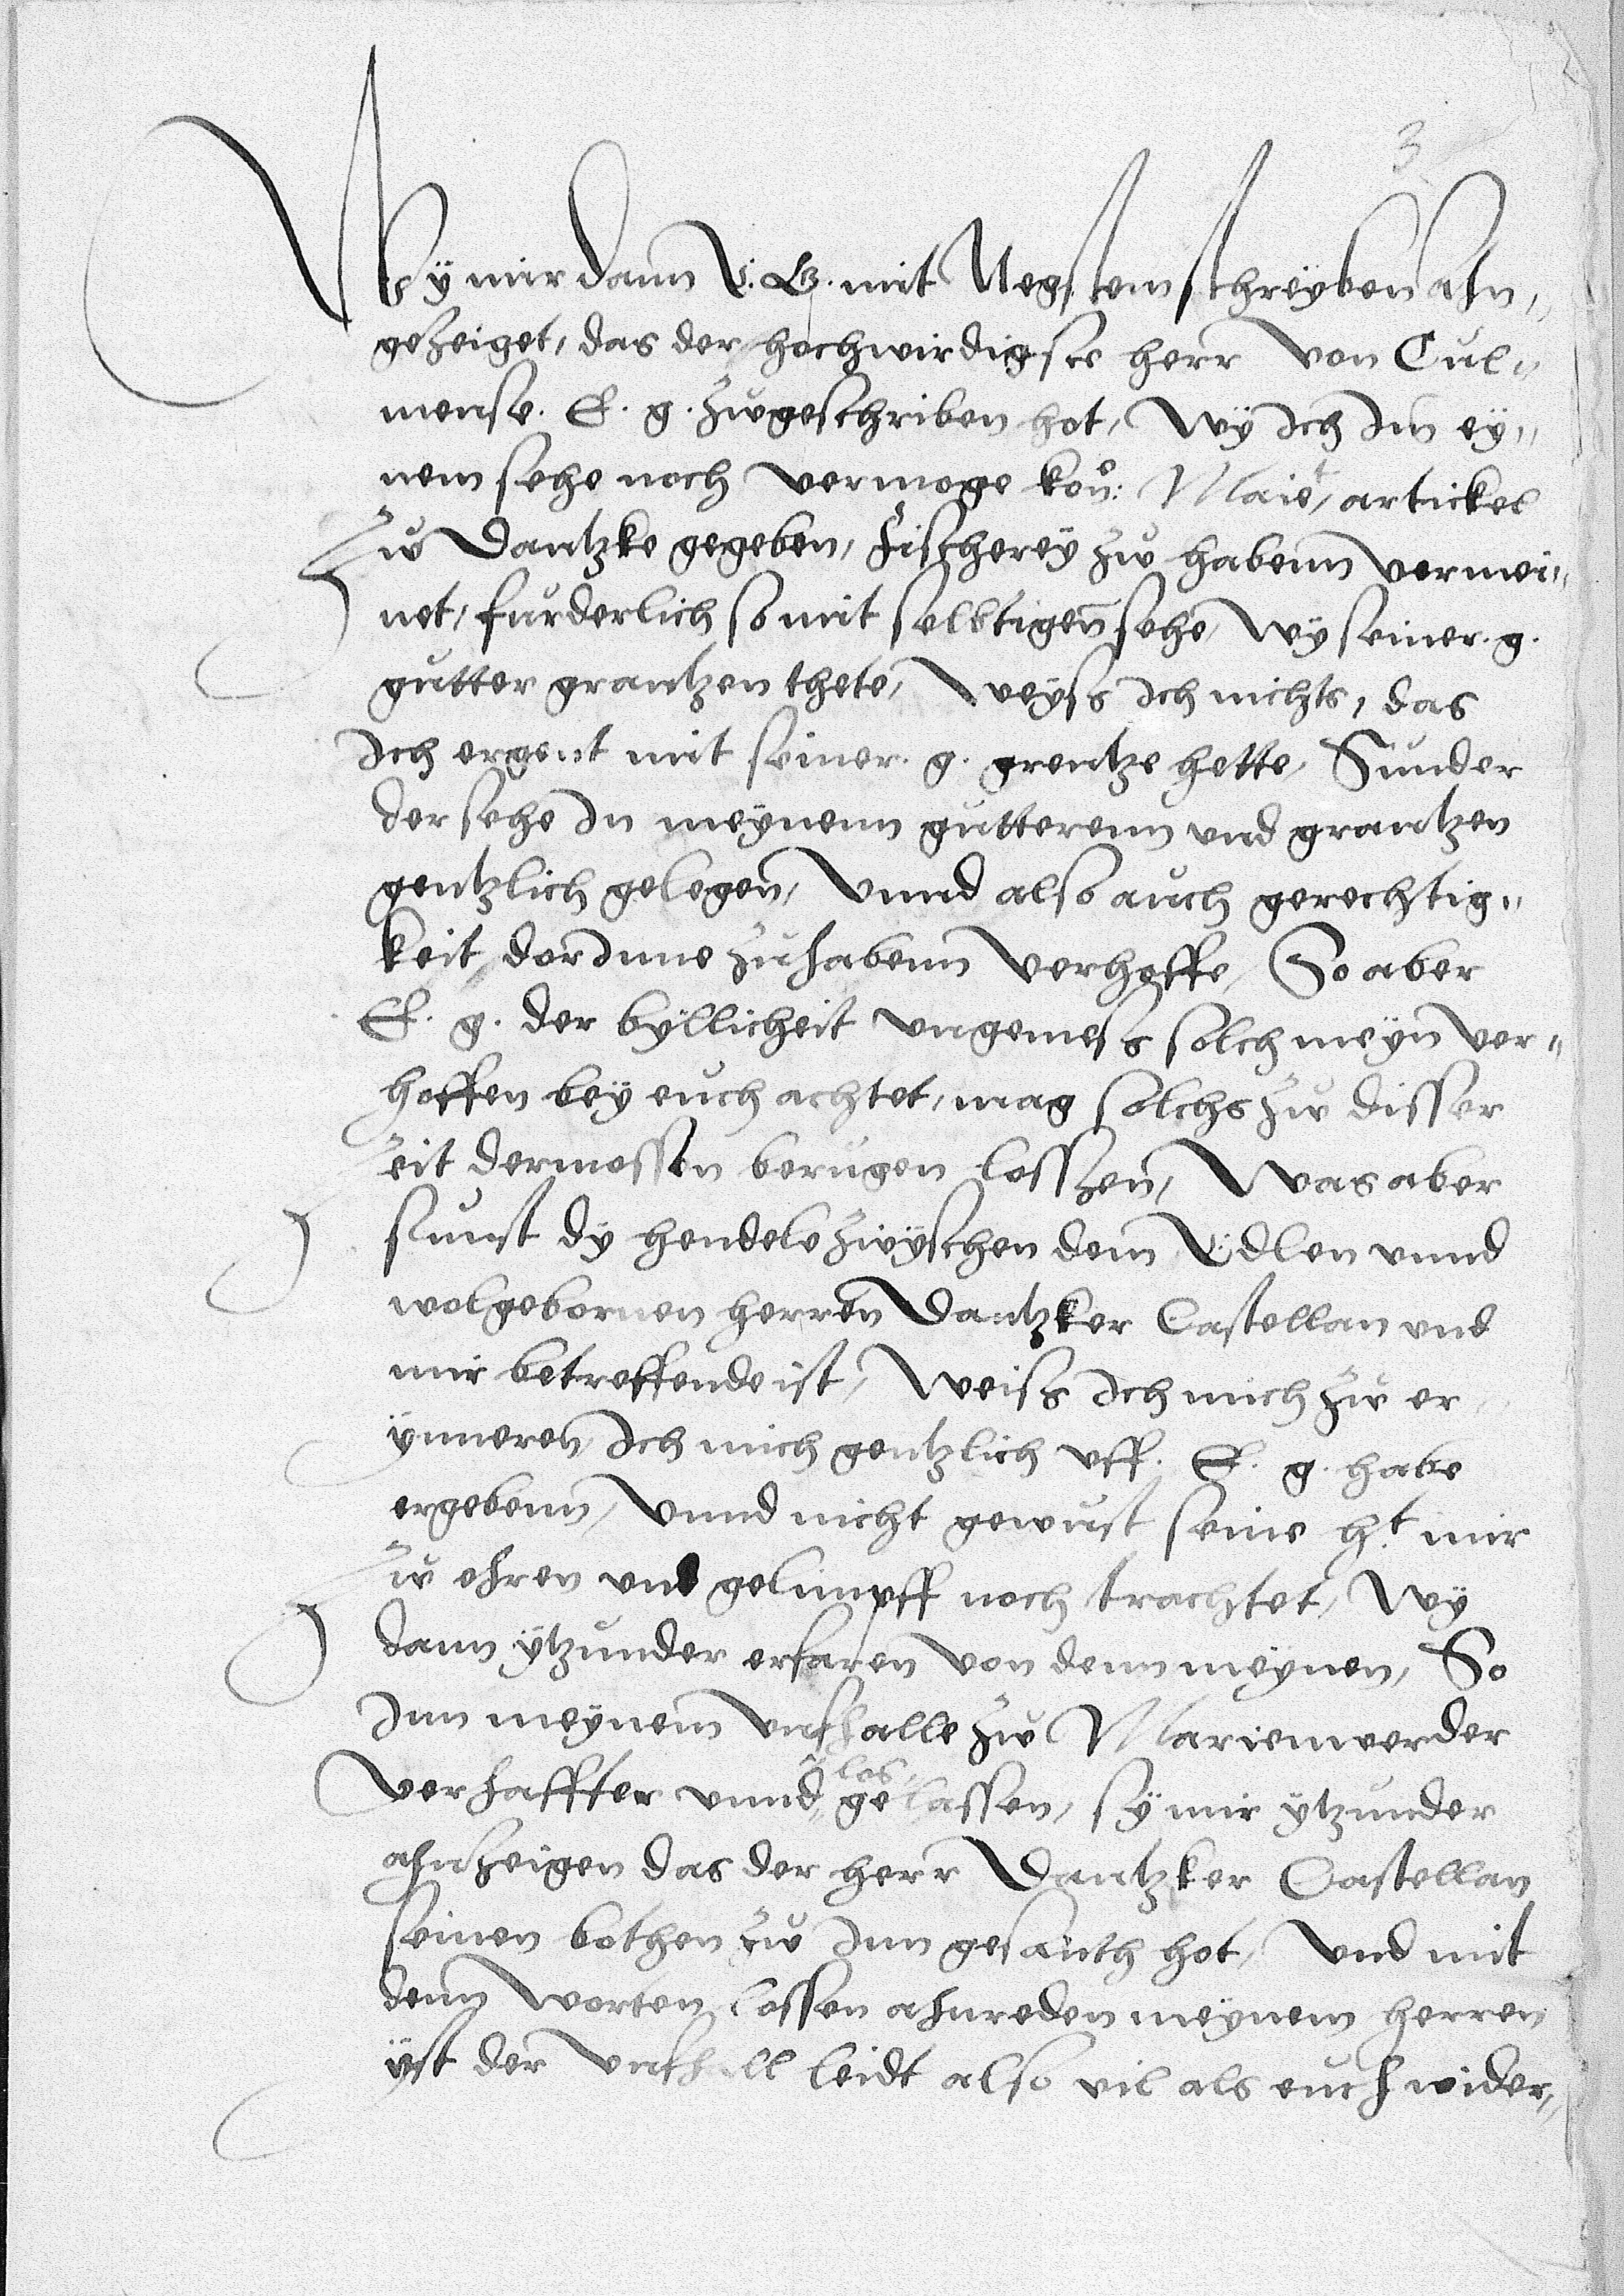 3
Wÿ mir dann E. G. mit Negstem schreyben ahn„
gezeiget, das der hochwirdigste herr von Cul„
mense. E. g. zwgeschriben hot, wÿ ich im eÿ„
nem sehe noch vermoge kön: Maiet, artickel
Zw Dantzke gegeben, fischereÿ zw habenn vermei„
net, furderlich so mit selbtigen sehe, wÿ seiner. g.
gutter grantzen thete, weÿss ich nichts, das
ich ergent mit seiner. g. grentze hette, Sunder
der sehe in meÿnenn gutterenn und grantzen
gentzlich gelegen, vnnd also auch gerechtig„
keit dorinne zuhabenn verhoffe, So aber
E. g. der byllicheit ungemess solch meÿn ver„
hoffen beÿ euch achtet, mag solchs zw disser
Zeit dermossen berugen losszen, was aber
sunst dÿ hendele zwÿschen dem Edlen vnnd
wolgebornen herren Dantzker Castellan vnd
mir betreffende ist, weiss ich mich zw er„
ÿnneren ich mich gentzlich vff. E. g. habe
ergebenn, vnnd nicht gewust seine h:t mir
Zw ehren vnd gelimpff noch trachtet, wÿ
dann ÿtzunder erfaren von denn meÿnen, So
inn meÿnem vnfhalle zw Marienwerder
verhaffter vnnd los gelassen, sÿ mir ÿtzunder
ahnzeigen das der herr Dantzker Castellan
seinen bothen zw inn gesanth hot, vnd mit
denn worten lossen ahnreden meÿnem herren
ÿst der vnfhall leidt also vil als euch wider„